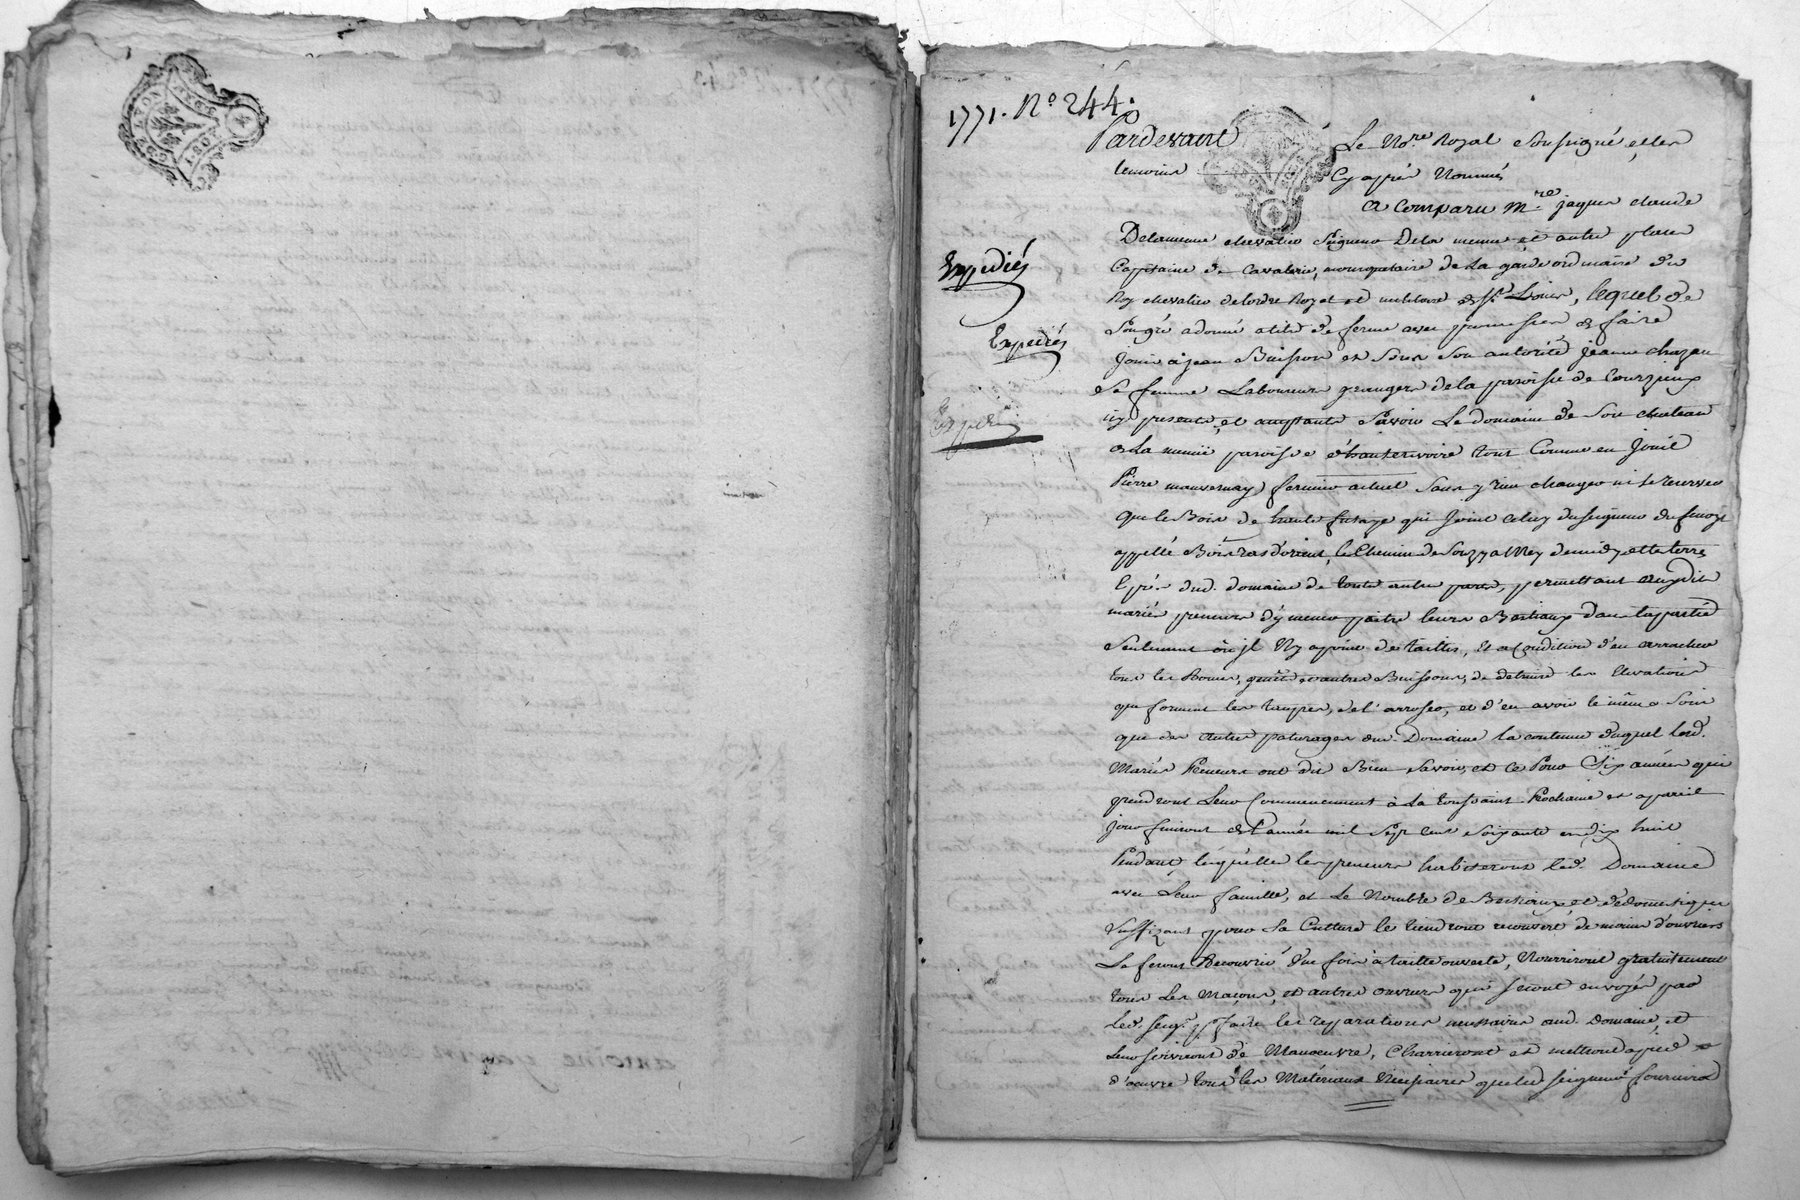 1771. No 244.
Pardevant Le No.re Royal Soussigné, et les
temoins Cy après Nommés
a Comparu m.re jaques claude
Delamenue chevalier Seigneur Dela menue et autre places
Capitaine de Cavalerie, mousquetaire de La garde ordinaire du
Roy chevalier de lordre Royal et militaire de St Louis, lequel de
Expediés
Son gré a donné a titre de ferme avec permission de faire
Expediés
Jouir à jean Buisson et sous son autorité jeanne chazau
Sa femme Laboureurs grangers de la paroisse de Courzieux
icy presents, et acceptants Savoir Le domaine de Son chateau
de La menue paroisse d'hauterivoire tout Comme en Jouit
Pierre mauvernay fermier actuel Sans y rien changer ni se reserver
que le Bois de haute futaye qui Joint celuy du seigneur du fenoyl
appellé Bois ras d'orient, le Chemin de Souzy a Mey de midy et les terres
Et prés dud. domaine de toute autre parts, permettant auxdits
mariés preneurs d'y mener paitre leurs Bestiaux dans la partie
Seulement où jl Ny a point de taillis, et a Condition d'en arracher
tous les Ronces, genets et autres Buissons, de detruire les Elevations
que forment les taupes, de l'arroser, et d'en avoir le même Soin
que des autres paturages dud. Domaine la contenue duquel lesd.
Mariés Preneurs ont dit Bien Savoir, et ce Pour Six années qui
prendront Leur Commencement à La toussaint Prochaine et a pareil
jour finiront de l'année mil Sept Cent Soixante en dix huit
Pendant lesquelles les preneurs habiteront led. Domaine
avec Leur famille, et Le Nombre de Bestiaux, et de domestiques
Suffizant pour Sa Culture le tiendront recouvert de mains d'ouvriers
Le feront Recouvrir Une fois à taille ouverte, Nourriront gratuitement
tous Les Maçons, et autres ouvriers qui seront envoyés par
led. Seigr. pr faire les reparations necessaires aud. Domaine, et
Leur serviront de Manoeuvre, Charrieront et mettront a pied
d'oeuvre tous les Matériaux Necessaires que led. seigneur fournira